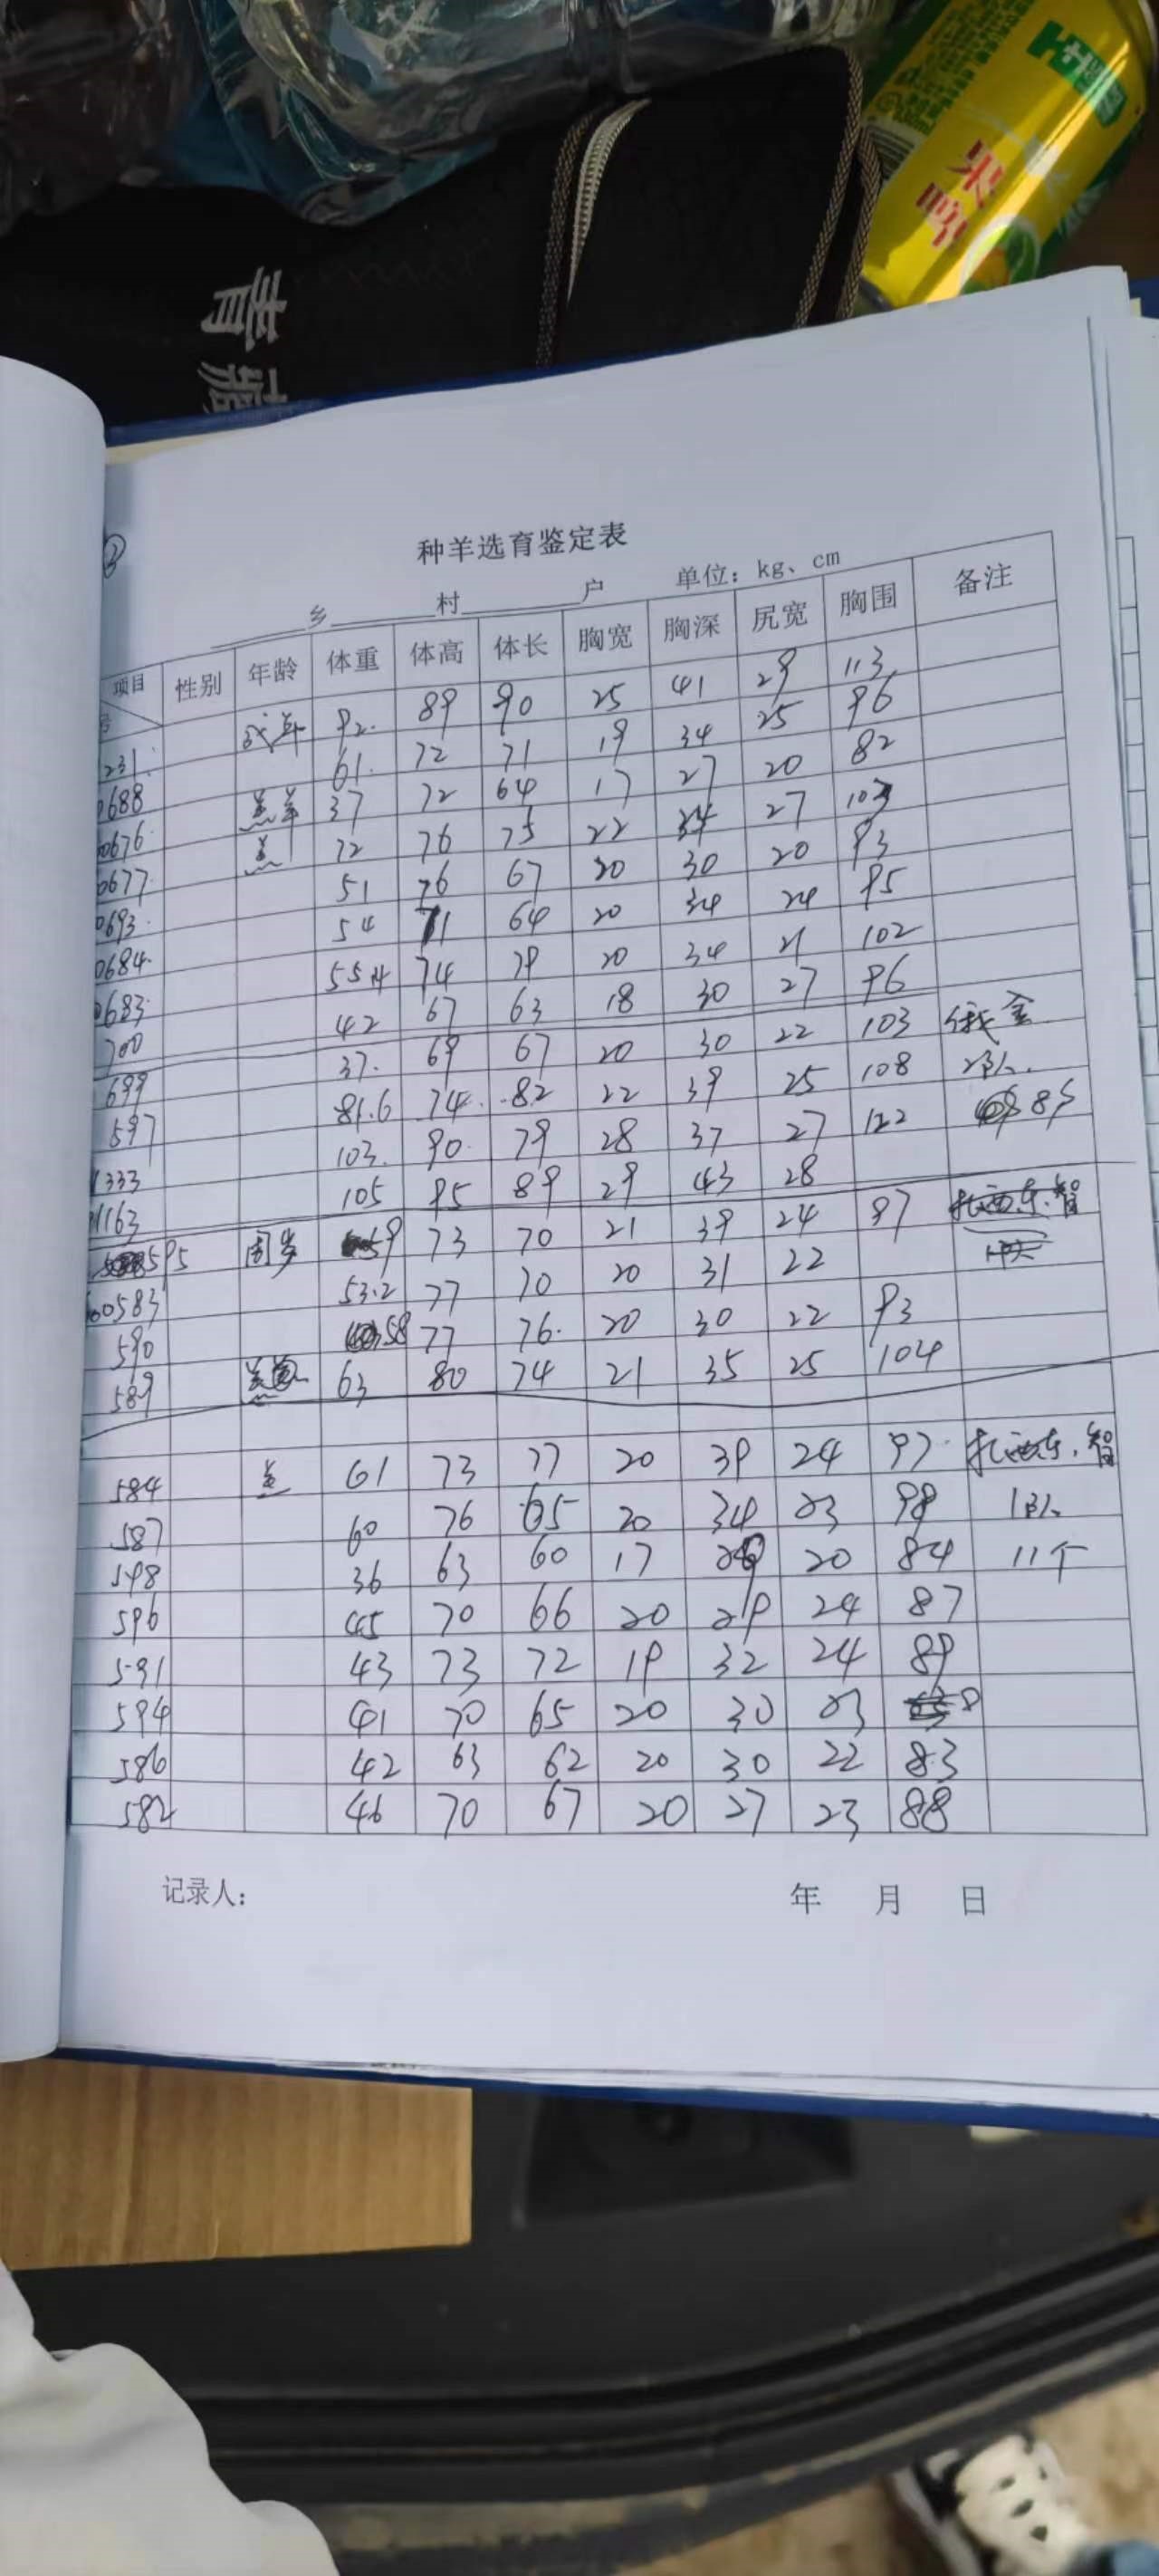 果啤
青
瓶
②
种羊选育鉴定表
乡 村 户 单位：kg、cm
项目 性别 年龄 体重 体高 体长 胸宽 胸深 尻宽 胸围 备注
号
231 成年 92. 89 90 25 41 29 113
0688 61. 72 71 19 34 25 96
0676 羔羊 37 72 64 17 27 20 82
0677 羔 72 76 75 22 34 27 103
0693 51 76 67 20 30 20 93
0684 54 71 64 20 34 24 95
0683 55.4 74 79 20 34 21 102
700 42 67 63 18 30 27 96
699 37. 69 67 20 30 22 103
597 81.6 74. 82 22 39 25 108
1333 103. 90. 79 28 37 27 122
1163 105 95 89 29 43 28
595 周岁 59 73 70 21 39 24 97
00583 53.2 77 70 20 31 22
590 58 77 76. 20 30 22 93
589 63 80 74 21 35 25 104
584 羔 61 73 77 20 39 24 97 扎西东智
587 60 76 65 20 34 23 98 1队
598 36 63 60 17 20 84 11个
596 45 70 66 20 29 24 87
591 43 73 72 19 32 24 89
594 41 70 65 20 30 23
586 42 63 62 20 30 22 83
582 46 70 67 20 27 23 88
记录人： 年 月 日